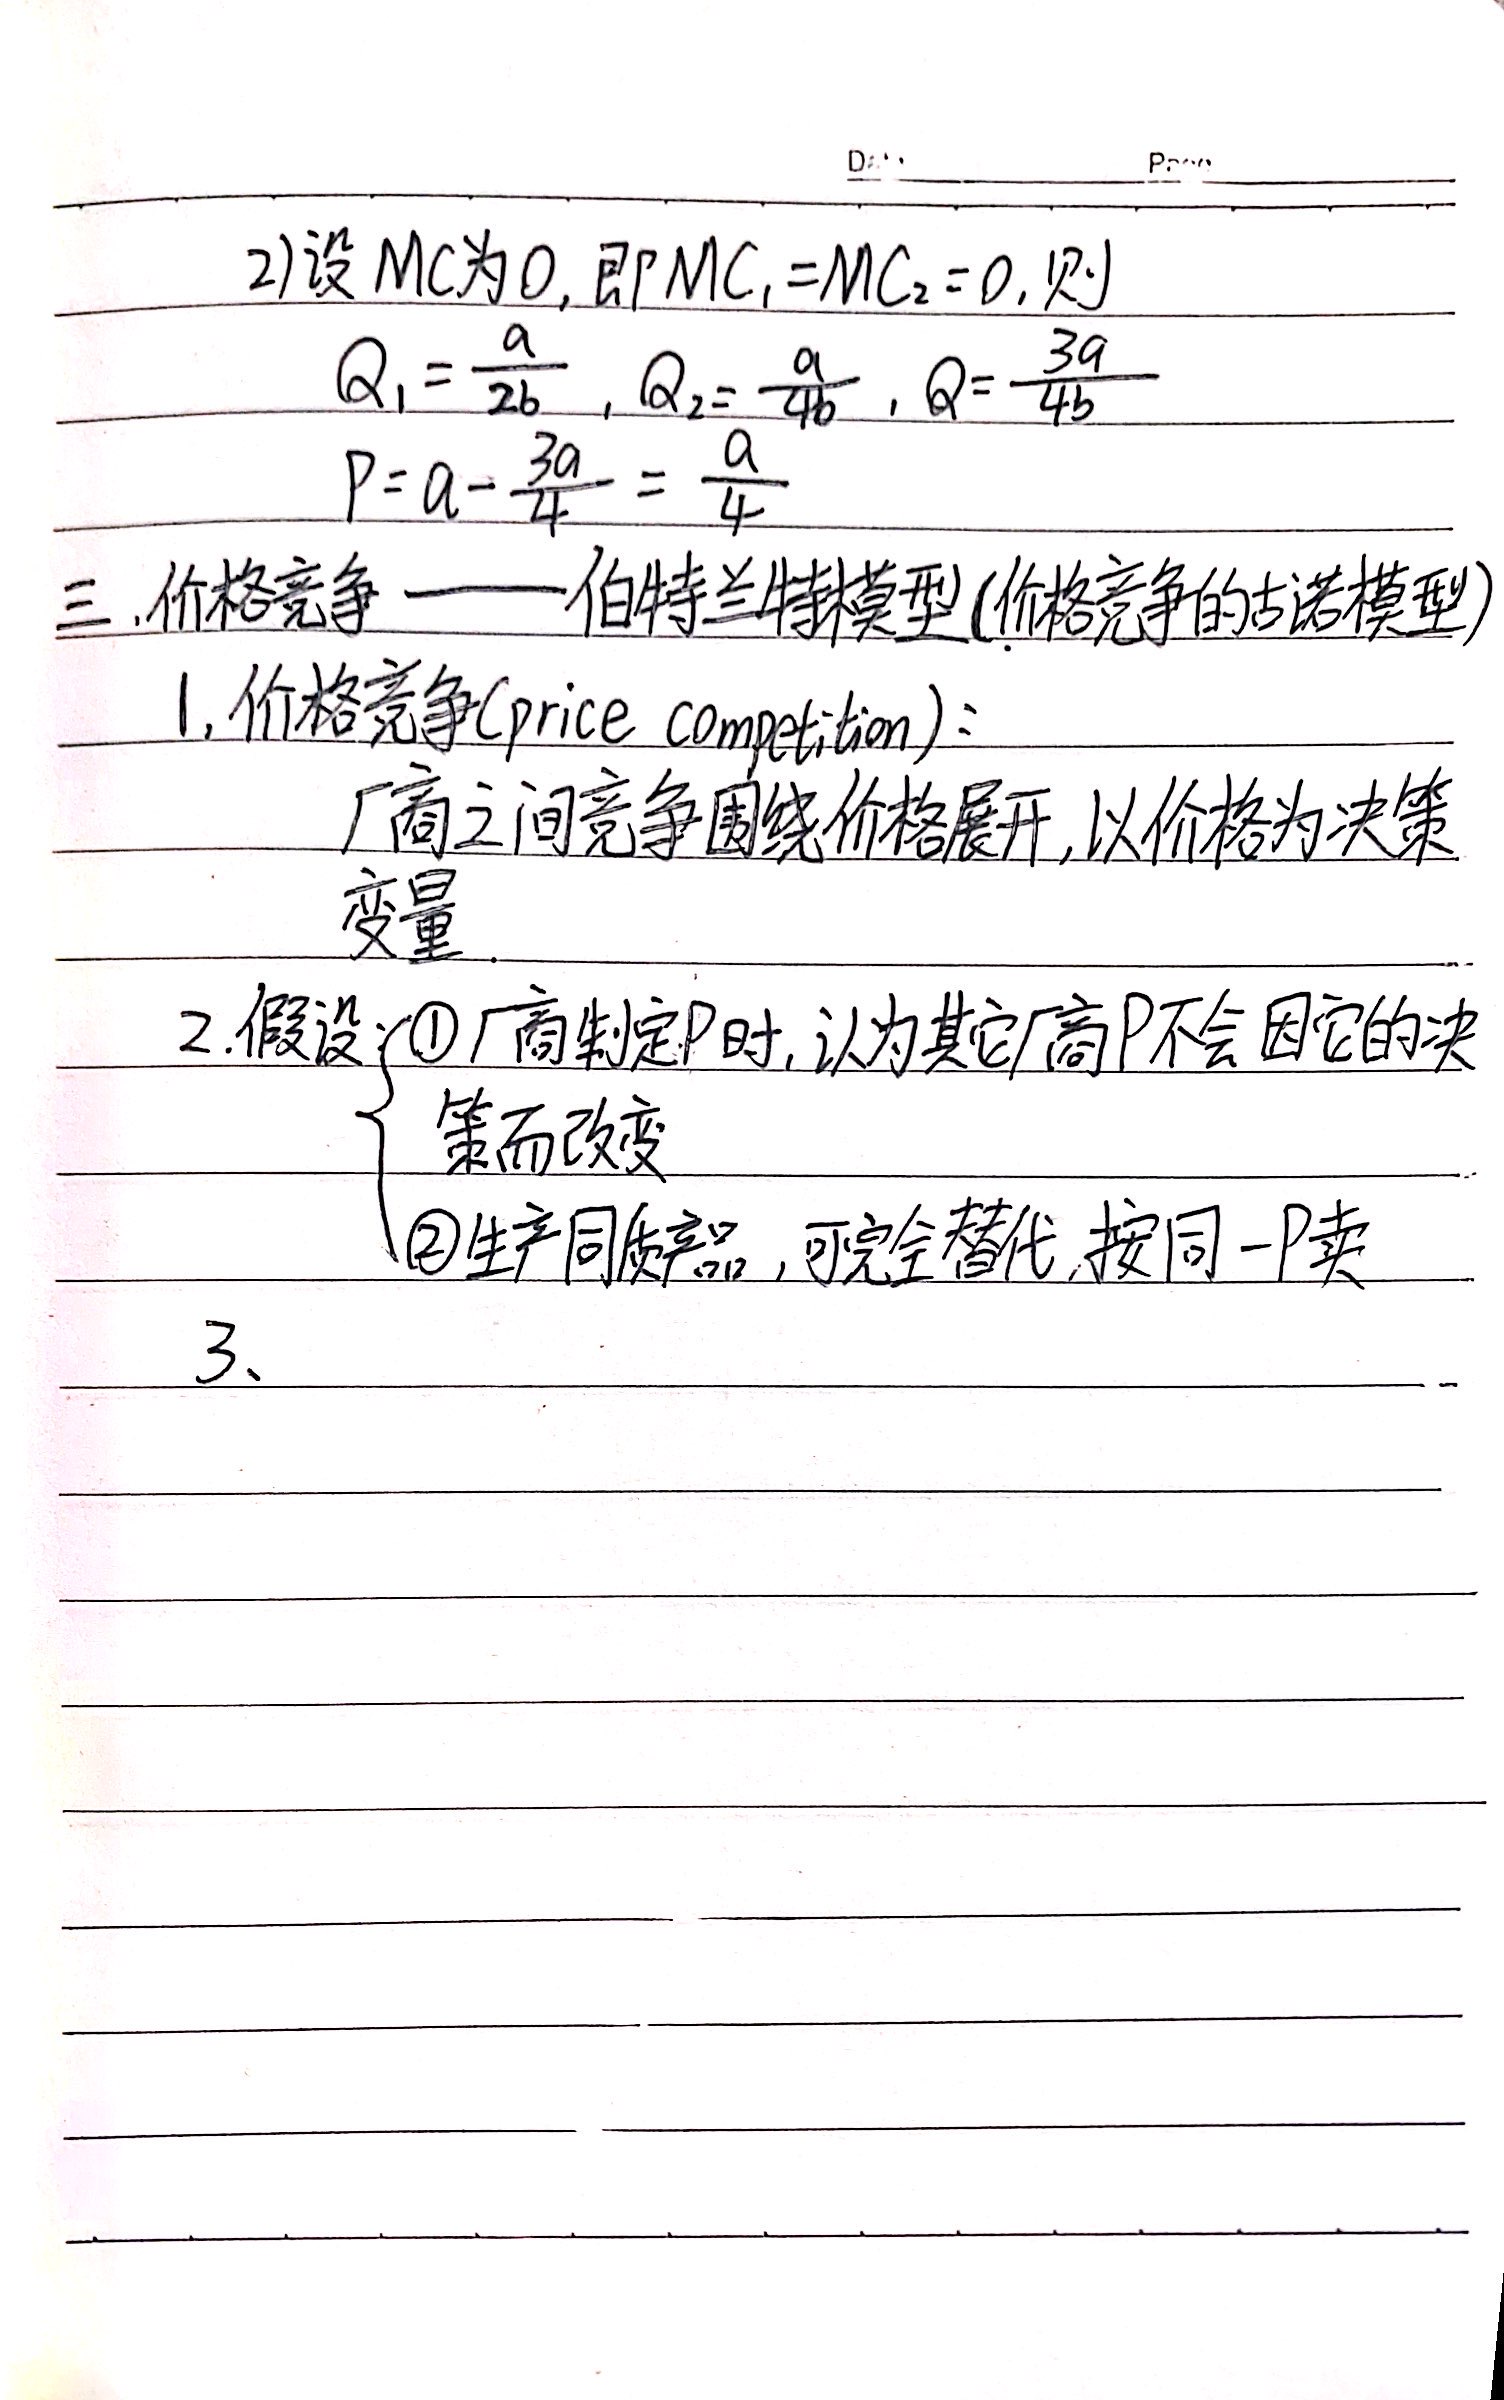 2)设MC为0,即MC₁=MC₂=0,则
Q₁=a/2b,Q₂=a/4b,Q=3a/4b
P=a-3a/4=a/4
三.价格竞争——伯特兰特模型(价格竞争的古诺模型)
1.价格竞争(price competition):
厂商之间竞争围绕价格展开,以价格为决策
变量.
2.假设:①厂商制定P时,认为其它厂商P不会因它的决
策而改变
②生产同质产品,可完全替代,按同一P卖
3、